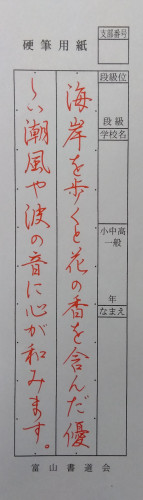 支部番号
硬筆用紙
段級位
段級
学校名
小中高一般
年
なまえ
海岸を歩くと花の香を含んだ優
しい潮風や波の音に心が和みます。
富山書道会